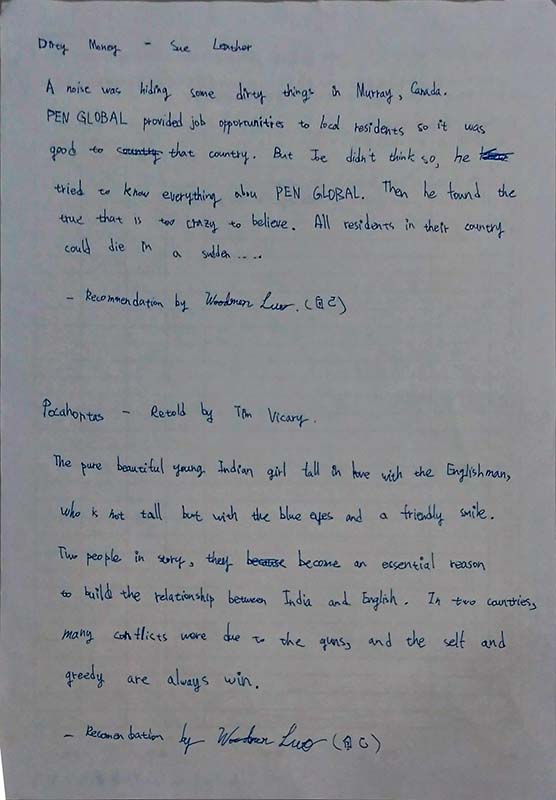 Dirty Money - Sue Leather
A noise was hiding some dirty things in Murray, Canada.
PEN GLOBAL provided job opportunities to local residents so it was
good to country that country. But Joe didn't think so, he
tried to know everything abou PEN GLOBAL. Then he found the
true that is too crazy to believe. All residents in their country
could die in a sudden .....
- Recommendation by Woodman Luo. (自己)
Pocahontas - Retold by Tim Vicary.
The pure beautiful young Indian girl fall in love with the Englishman,
who is not tall but with the blue eyes and a friendly smile.
Two people in story, they because become an essential reason
to build the relationship between India and English. In two countries,
many conflicts were due to the guns, and the self and
greedy are always win.
- Recomendation by Woodman Luo (自己)